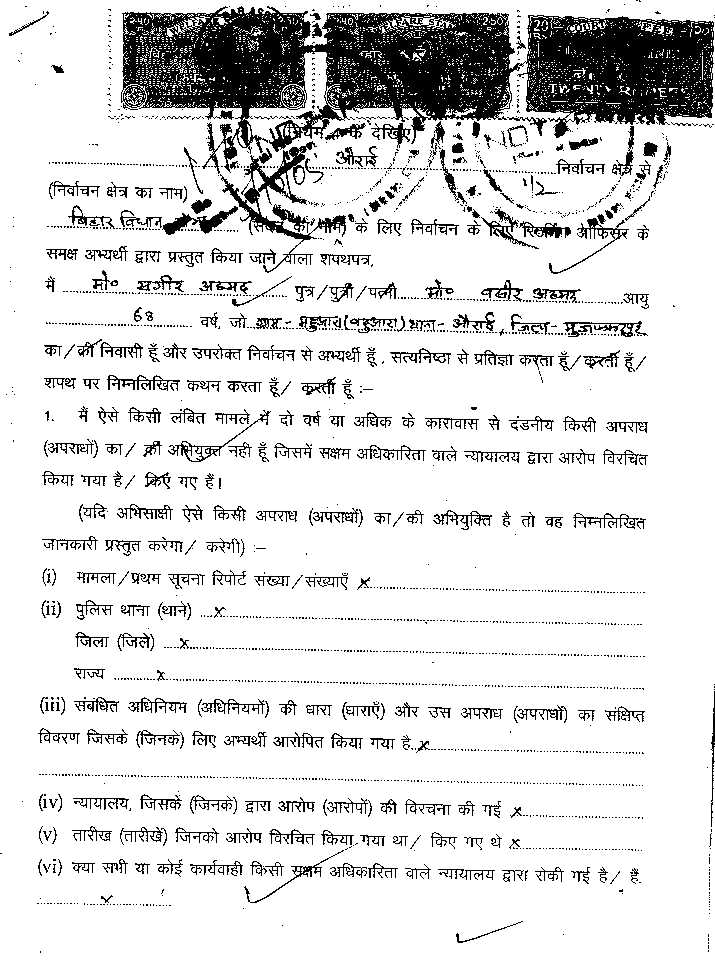 (नियम 4 क देखिए)
औराई निर्वाचन क्षेत्र से
(निर्वाचन क्षेत्र का नाम)
बिहार विधान सभा (सदन का नाम) के लिए निर्वाचन के लिए रिटर्निंग ऑफिसर के
समक्ष अभ्यर्थी द्वारा प्रस्तुत किया जाने वाला शपथपत्र,
मैं मो० सगीर अहमद पुत्र/पुत्री/पत्नी मो० वसीर अहमद आयु
68 वर्ष, जो ग्राम - महुआरा थाना - औराई, जिला - मुजफ्फरपुर
का/की निवासी हूँ और उपरोक्त निर्वाचन से अभ्यर्थी हूँ, सत्यनिष्ठा से प्रतिज्ञा करता हूँ/करती हूँ/
शपथ पर निम्नलिखित कथन करता हूँ/ करती हूँ :–
1. मैं ऐसे किसी लंबित मामले में दो वर्ष या अधिक के कारावास से दंडनीय किसी अपराध
(अपराधों) का/ की अभियुक्त नही हूँ जिसमें सक्षम अधिकारिता वाले न्यायालय द्वारा आरोप विरचित
किया गया है/ किए गए हैं।
(यदि अभिसाक्षी ऐसे किसी अपराध (अपराधों) का/की अभियुक्ति है तो वह निम्नलिखित
जानकारी प्रस्तुत करेगा/ करेगी) :–
(i) मामला/प्रथम सूचना रिपोर्ट संख्या/संख्याएँ x
(ii) पुलिस थाना (थाने) x
जिला (जिले) x
राज्य x
(iii) संबंधित अधिनियम (अधिनियमों) की धारा (धाराएँ) और उस अपराध (अपराधों) का संक्षिप्त
विवरण जिसके (जिनके) लिए अभ्यर्थी आरोपित किया गया है x
(iv) न्यायालय, जिसके (जिनके) द्वारा आरोप (आरोपों) की विरचना की गई x
(v) तारीख (तारीखें) जिनको आरोप विरचित किया गया था/ किए गए थे x
(vi) क्या सभी या कोई कार्यवाही किसी सक्षम अधिकारिता वाले न्यायालय द्वारा रोकी गई है/ हैं.
x